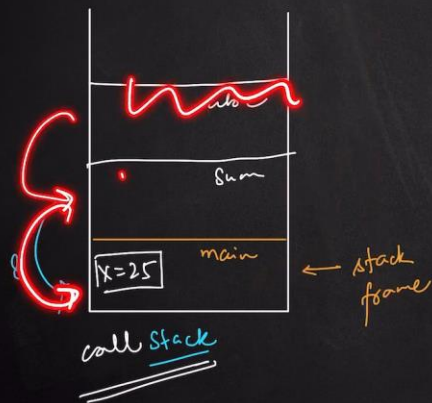 Sum
main
x=25
stack
frame
call stack